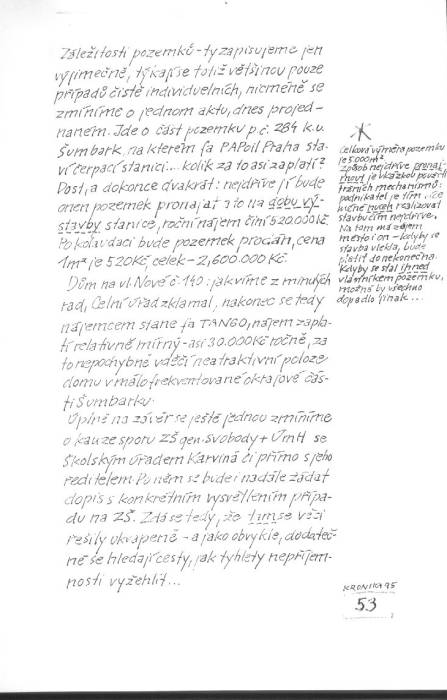 Záležitosti pozemků - ty zapisujeme jen
výjimečně, týkají se totiž většinou pouze
případů čistě individuelních, nicméně se
zmíníme o jednom aktu, dnes projed-
naném. Jde o část pozemku p.č. 284 k.ú.
Šumbark, na kterém fa PAPoil Praha sta-
ví čerpací stanici... kolik za to asi zaplatí?
Dost, a dokonce dvakrát: nejdříve jí bude
onen pozemek pronajat a to na dobu vý-
stavby stanice, roční nájem činí 520.000Kč.
Po kolaudaci bude pozemek prodán, cena
1m² je 520Kč, celek - 2,600.000 Kč.
Dům na ul. Nové č. 140: jak víme z minulých
rad, Celní úřad zklamal, nakonec se tedy
nájemcem stane fa TANGO, nájem zapla-
tí relativně mírný - asi 30.000Kč ročně, za
to nepochybně vděčí neatraktivní poloze
domu v málo frekventované okrajové čás-
ti Šumbarku.
Úplně na závěr se ještě jednou zmíníme
o kauze sporu ZŠ gen. Svobody + ÚmH se
Školským úřadem Karviná či přímo s jeho
ředitelem. Po něm se bude i nadále žádat
dopis s konkrétním vysvětlením přípa-
du na ZŠ. Zdá se tedy, že tím se věci
řešily ukvapeně - a jako obvykle, dodateč-
ně se hledají cesty, jak tyhlety nepříjem-
nosti vyžehlit...
Celková výměra pozemku
je 5.000m²
způsob nejdříve pronaj-
mout je ukázkou použití
tržních mechanismů:
podnikatel je tím
nucen realizovat
stavbu čím nejdříve.
Na tom má zájem
město i on - kdyby se
stavba vlekla, bude
platit donekonečna.
Kdyby se stal ihned
vlastníkem pozemku,
možná by všechno
dopadlo jinak...
KRONIKA 95
53